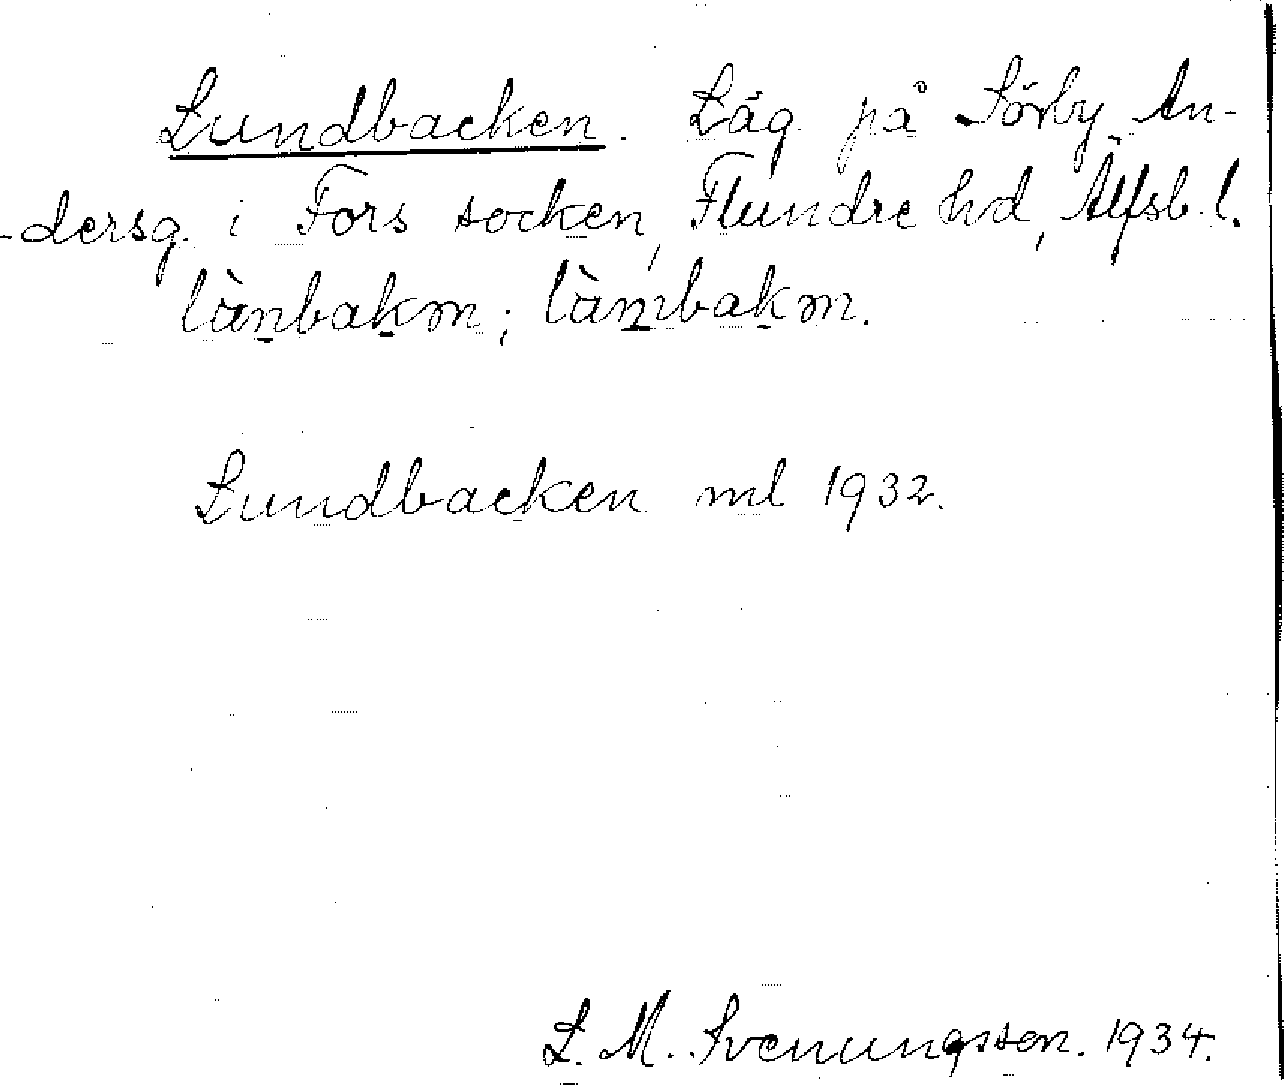 Lundbacken. Låg på Sörby An-
-dersg. i Fors socken, Flundre hd, Älfsb. l.
lànbakm; làmbakm.
Lundbacken ml 1932.
L. M. Svenungsson. 1934.